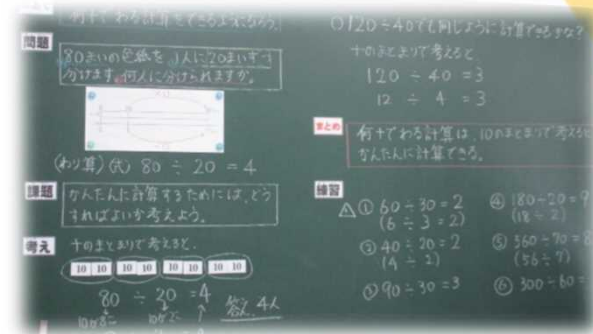 何十でわる計算をできるようになろう。
問題
80まいの色紙を、1人に20まいずつ
分けます。何人に分けられますか。
(わり算)(式) 80 ÷ 20 = 4
課題
かんたんに計算するためには、どう
すればよいか考えよう。
考え
十のまとまりで考えると、
10 10 10 10 10 10 10 10
80 ÷ 20 = 4
答え 4人
10が8こ
○120÷40でも同じように計算できるかな?
十のまとまりで考えると、
120 ÷ 40 = 3
12 ÷ 4 = 3
まとめ
何十でわる計算は、10のまとまりで考えると
かんたんに計算できる。
練習
① 60÷30=2
(6÷3=2)
② 40÷20=2
(4÷2)
③ 90÷30=3
④ 180÷20=9
(18÷2)
⑤ 560÷70=8
(56÷7)
⑥ 300÷60=